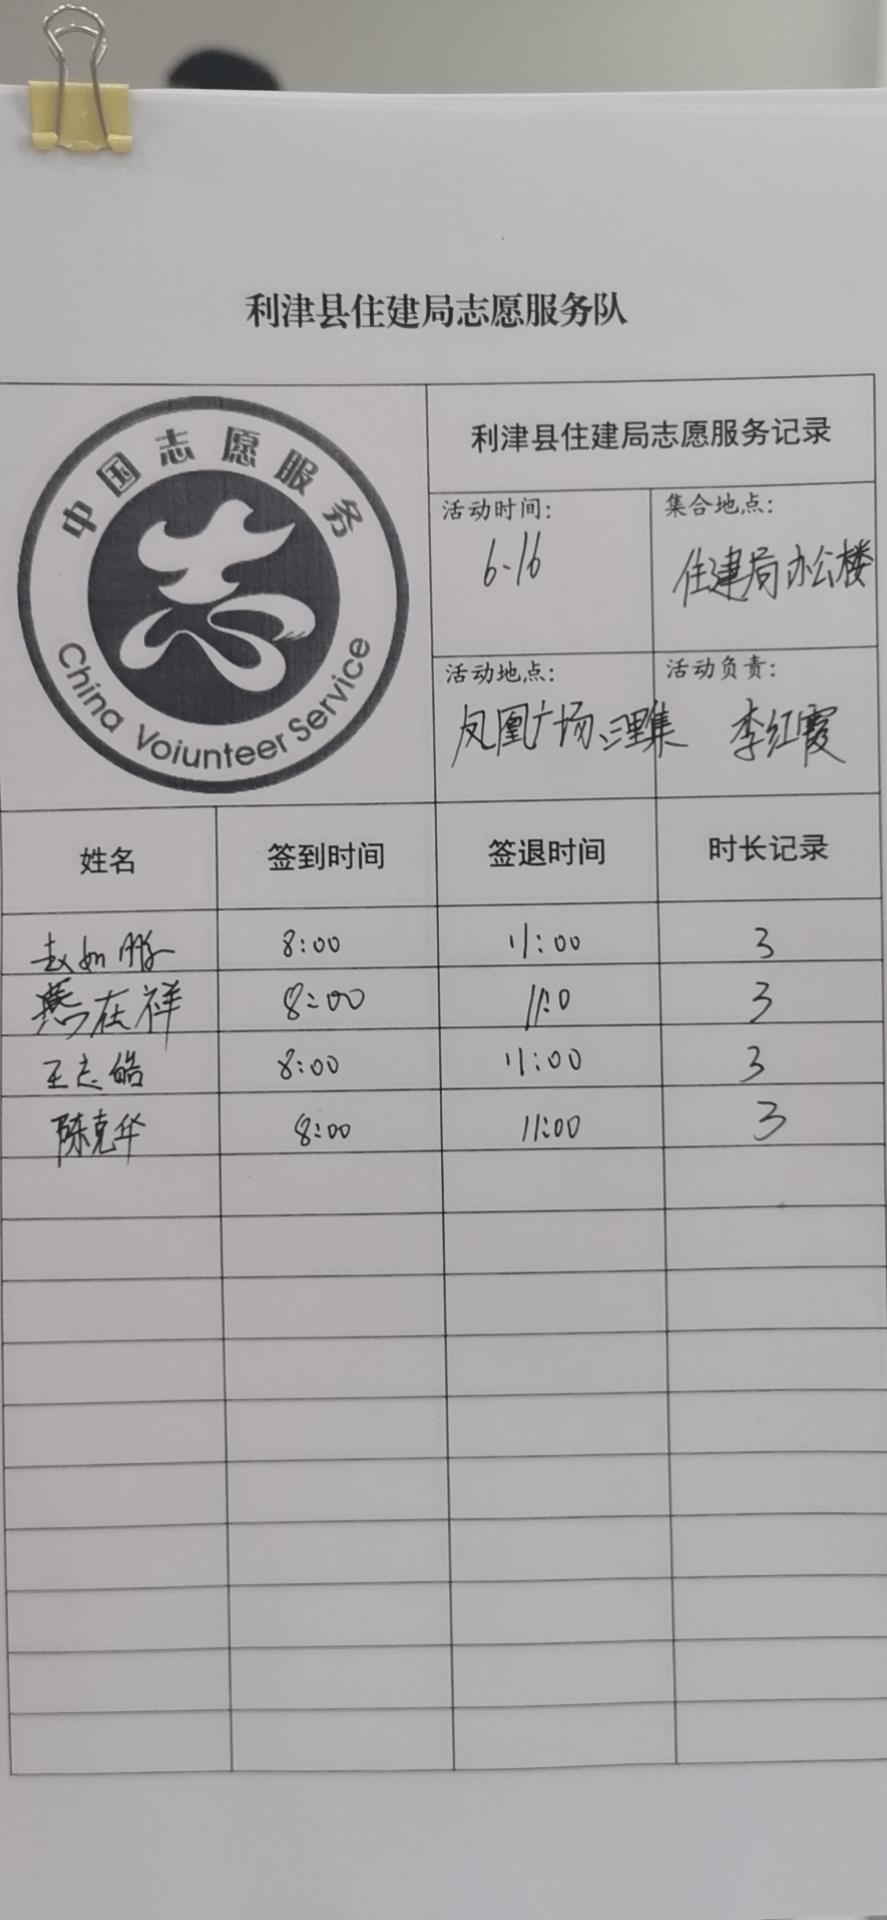 利津县住建局志愿服务队
中国志愿服务
志
China Voiunteer Service
利津县住建局志愿服务记录
活动时间:
6-16
集合地点:
住建局办公楼
活动地点:
凤凰广场、三里集
活动负责:
李红霞
姓名 签到时间 签退时间 时长记录
赵如鹏 8:00 11:00 3
在祥 8:00 11:0 3
王志皓 8:00 11:00 3
陈克华 8:00 11:00 3